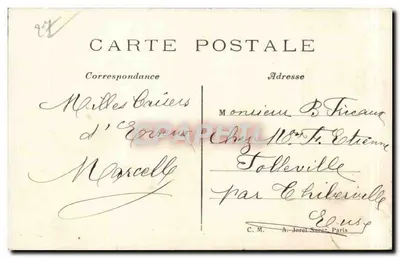 27
CARTE POSTALE
Correspondance
Adresse
Milles baisers
d'Evreux
Marcelle
Monsieur B. Ficaux
Chez Mr F. Etienne
Folleville
par Thiberville
Eure
C. M. A. Jorel Succr, Paris